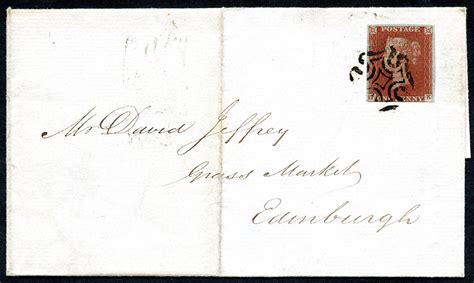 POSTAGE
ONE PENNY
Mr David Jeffrey
Grass Market
Edinburgh